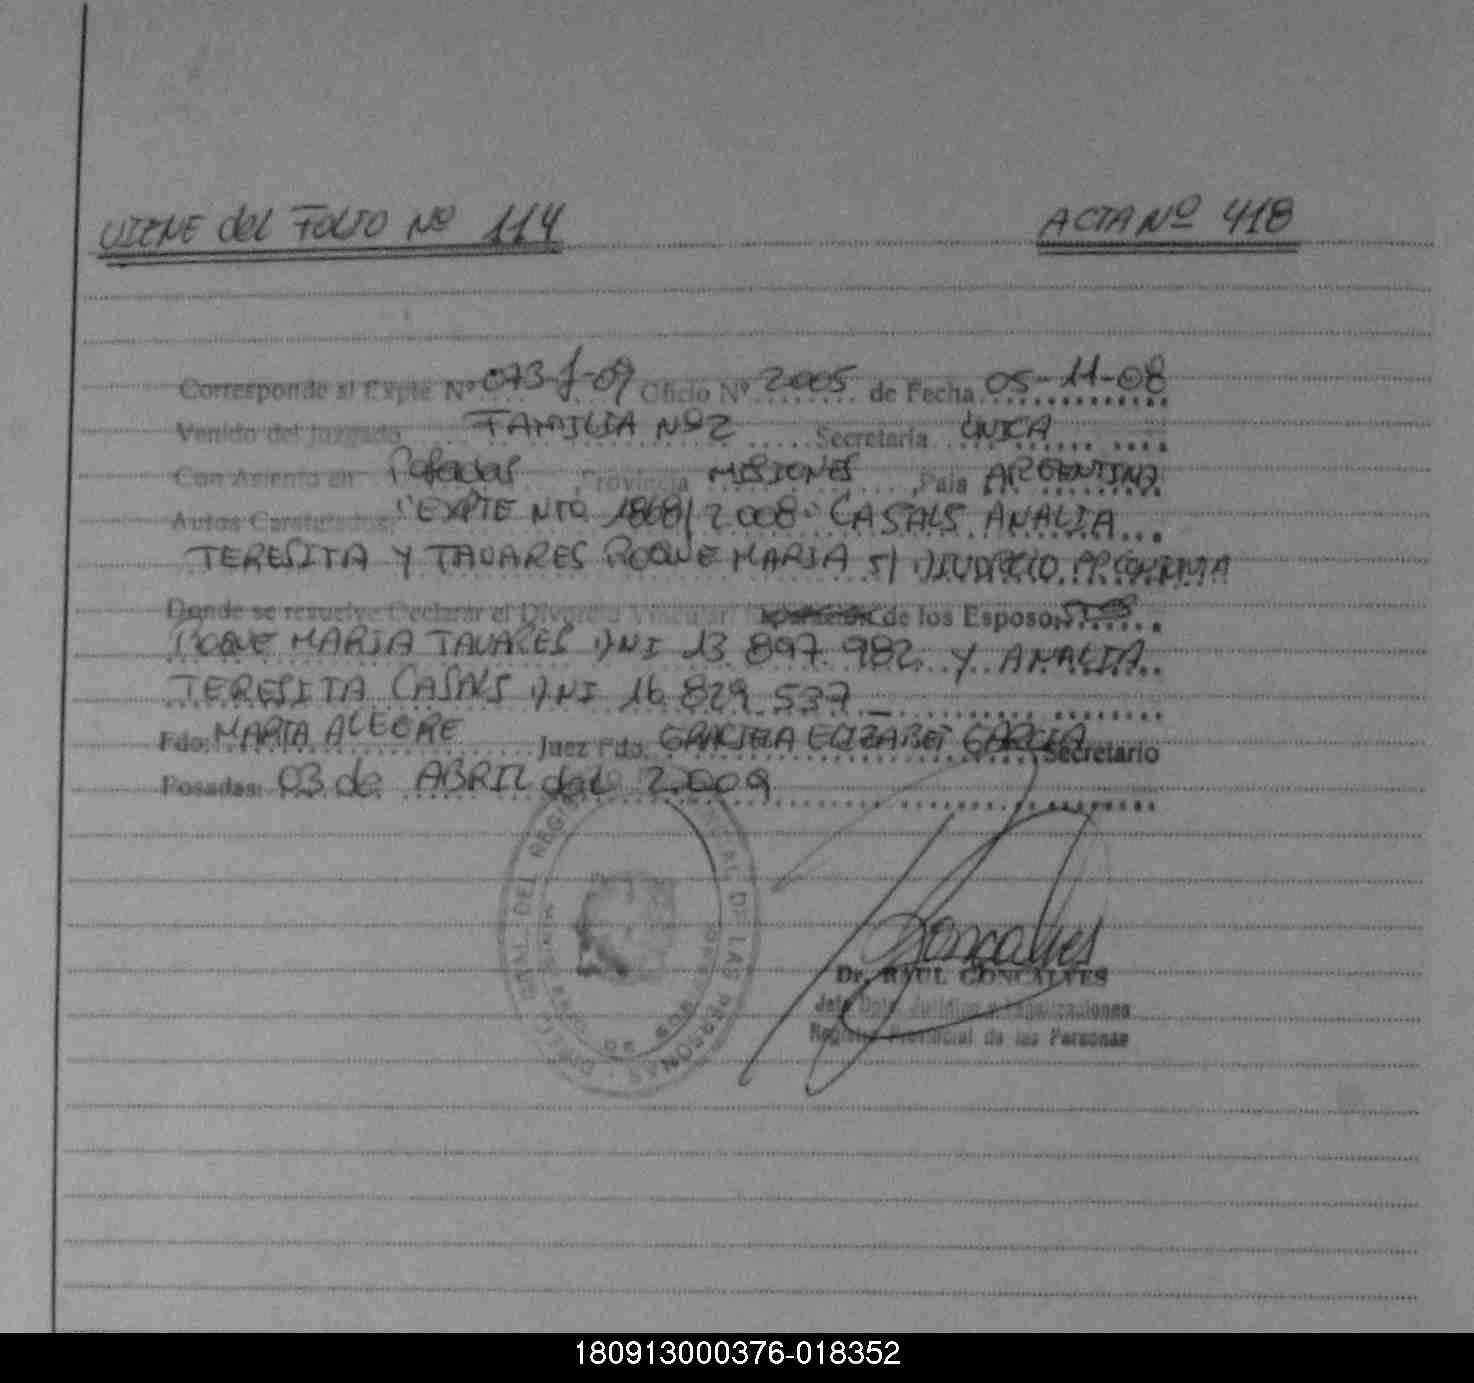 VIENE del FOLIO Nº 114 ACTA Nº 418
Corresponde al Expte Nº 073-J-09 Oficio Nº 2005 de Fecha 05-11-08
Venido del Juzgado FAMILIA Nº 2 Secretaria UNICA
Con Asiento en Posadas, Provincia MISIONES, Pais ARGENTINA
Autos Caratulados: "EXPTE NRO 1868/2008 CASALS ANALIA
TERESITA Y TAVARES ROQUE MARIA S/ DIVORCIO
Donde se resuelve Declarar el Divorcio Vincular de los Esposos
ROQUE MARIA TAVARES DNI 13 897 982 Y ANALIA
TERESITA CASALS DNI 16 829 537
Fdo: MARTA ALEGRE Juez Fdo. GRACIELA ELIZABET GARCIA Secretario
Posadas: 03 de ABRIL del 2009
Goncalves
Dr. RAUL GONCALVES
Jefe Dpto. Jurídico y Legalizaciones
Registro Provincial de las Personas
GRAL. DEL REGISTRO DE LAS PERSONAS
180913000376-018352